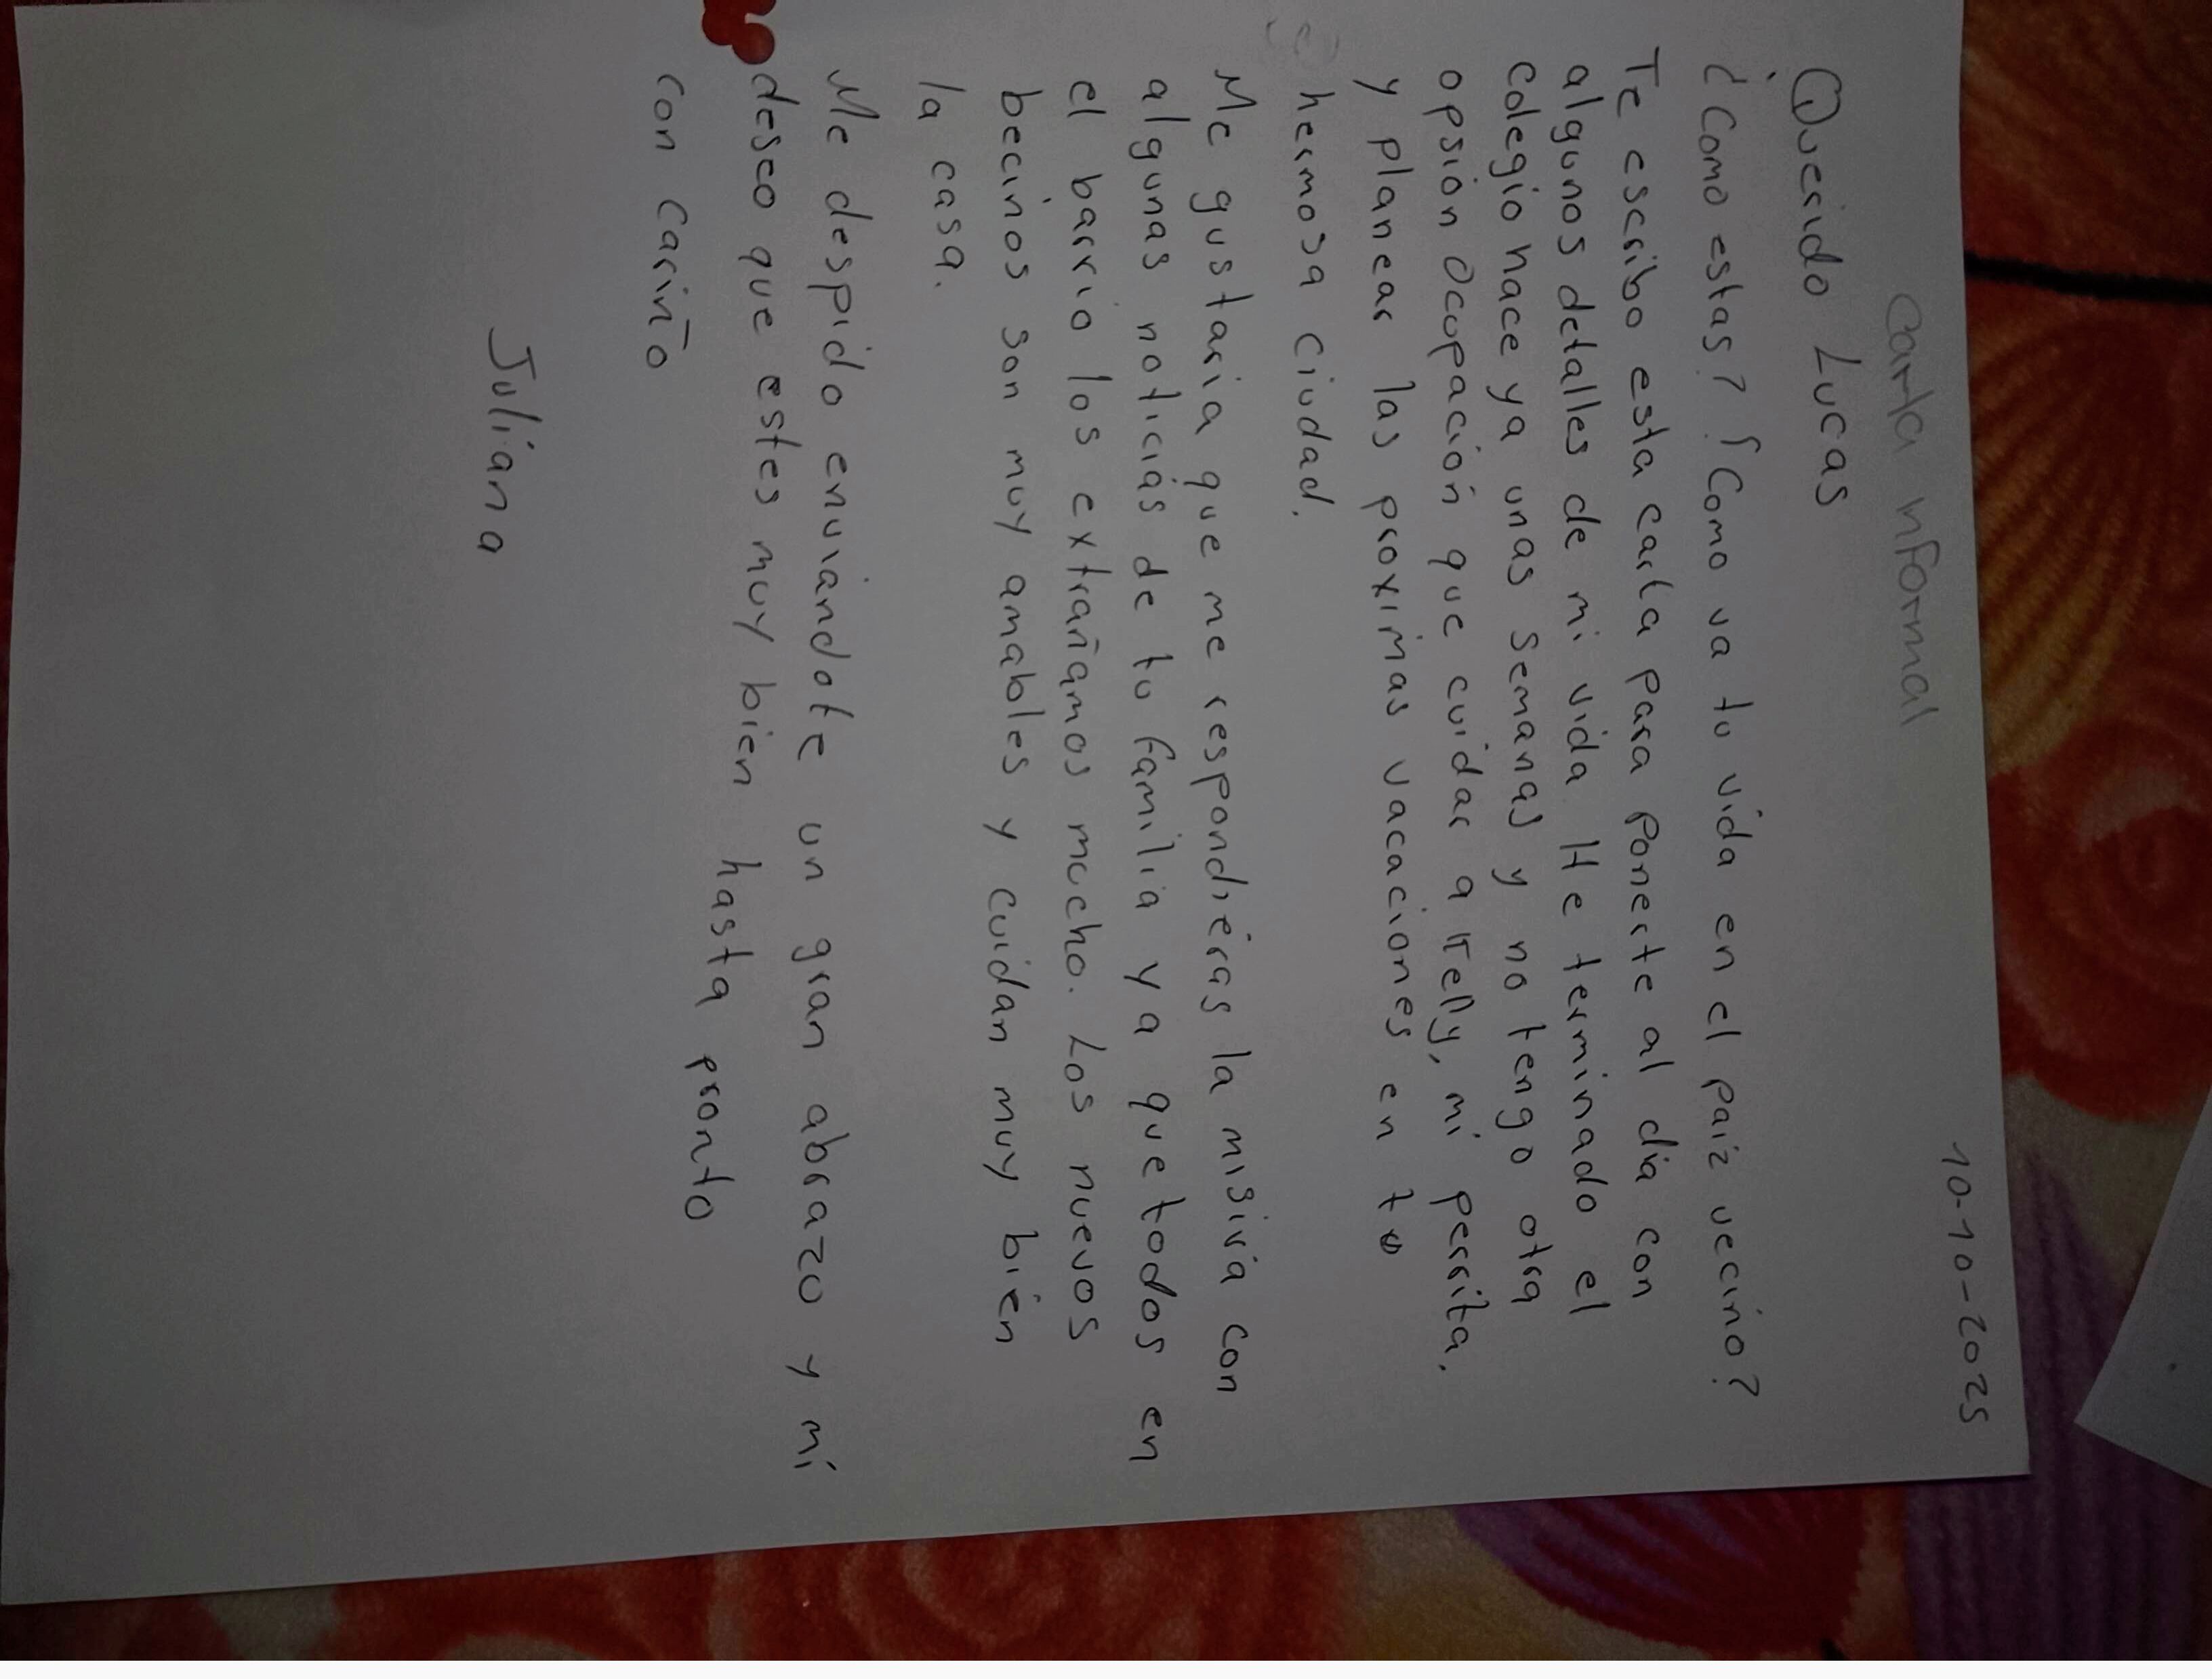 10-10-2025
Carta nformal
Querido Lucas
¿Como estas? ¿Como va tu vida en el paiz vecino?
Te escribo esta carta para ponerte al dia con
algunos detalles de mi vida. He terminado el
colegio hace ya unas semanas y no tengo otra
opsion ocupación que cuidar a Kelly, mi perrita.
y planear las proximas vacaciones en tu
hermosa ciudad.
Me gustaria que me respondieras la misiva con
algunas noticias de tu familia ya que todos en
el barrio los extrañamos mucho. Los nuevos
becinos son muy amables y cuidan muy bien
la casa.
Me despido enviandote un gran abrazo y mi
deseo que estes muy bien hasta pronto
con cariño
Juliana